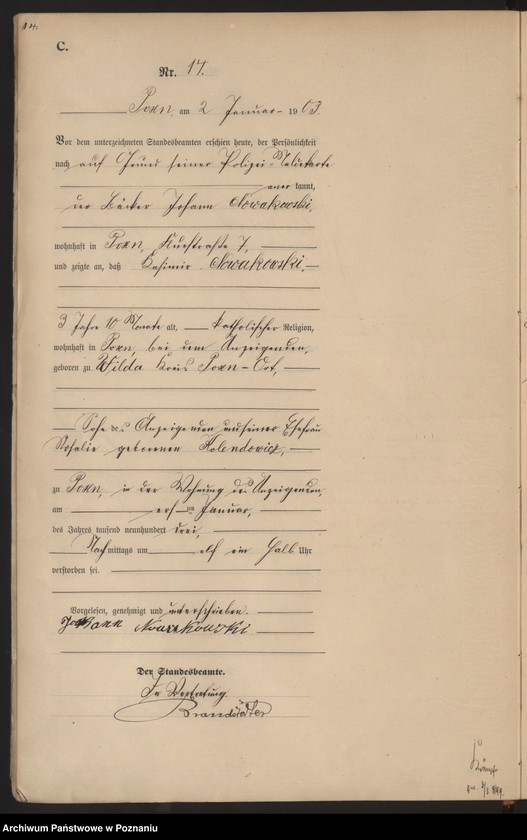 14.
C.
Nr. 14.
Posen, am 2 Januar 1903.
Vor dem unterzeichneten Standesbeamten erschien heute, der Persönlichkeit
nach auf Grund seiner Polizei-Meldekarte
anerkannt,
der Bäcker Johann Nowakowski,
wohnhaft in Posen, 7,
und zeigte an, daß Kasimir Nowakowski,
3 Jahre 10 Monate alt, katholischer Religion,
wohnhaft in Posen, bei dem Anzeigenden,
geboren zu Wilda Kreis Posen-Ost,
Sohn des Anzeigenden und seiner Ehefrau
Rosalie geborenen
zu Posen, in der Wohnung des Anzeigenden,
am ersten Januar,
des Jahres tausend neunhundert drei,
Nachmittags um elf ein halb Uhr
verstorben sei.
Vorgelesen, genehmigt und unterschrieben.
Johann Nowakowski
Der Standesbeamte.
In Vertretung.
Brandstäter
Archiwum Państwowe w Poznaniu